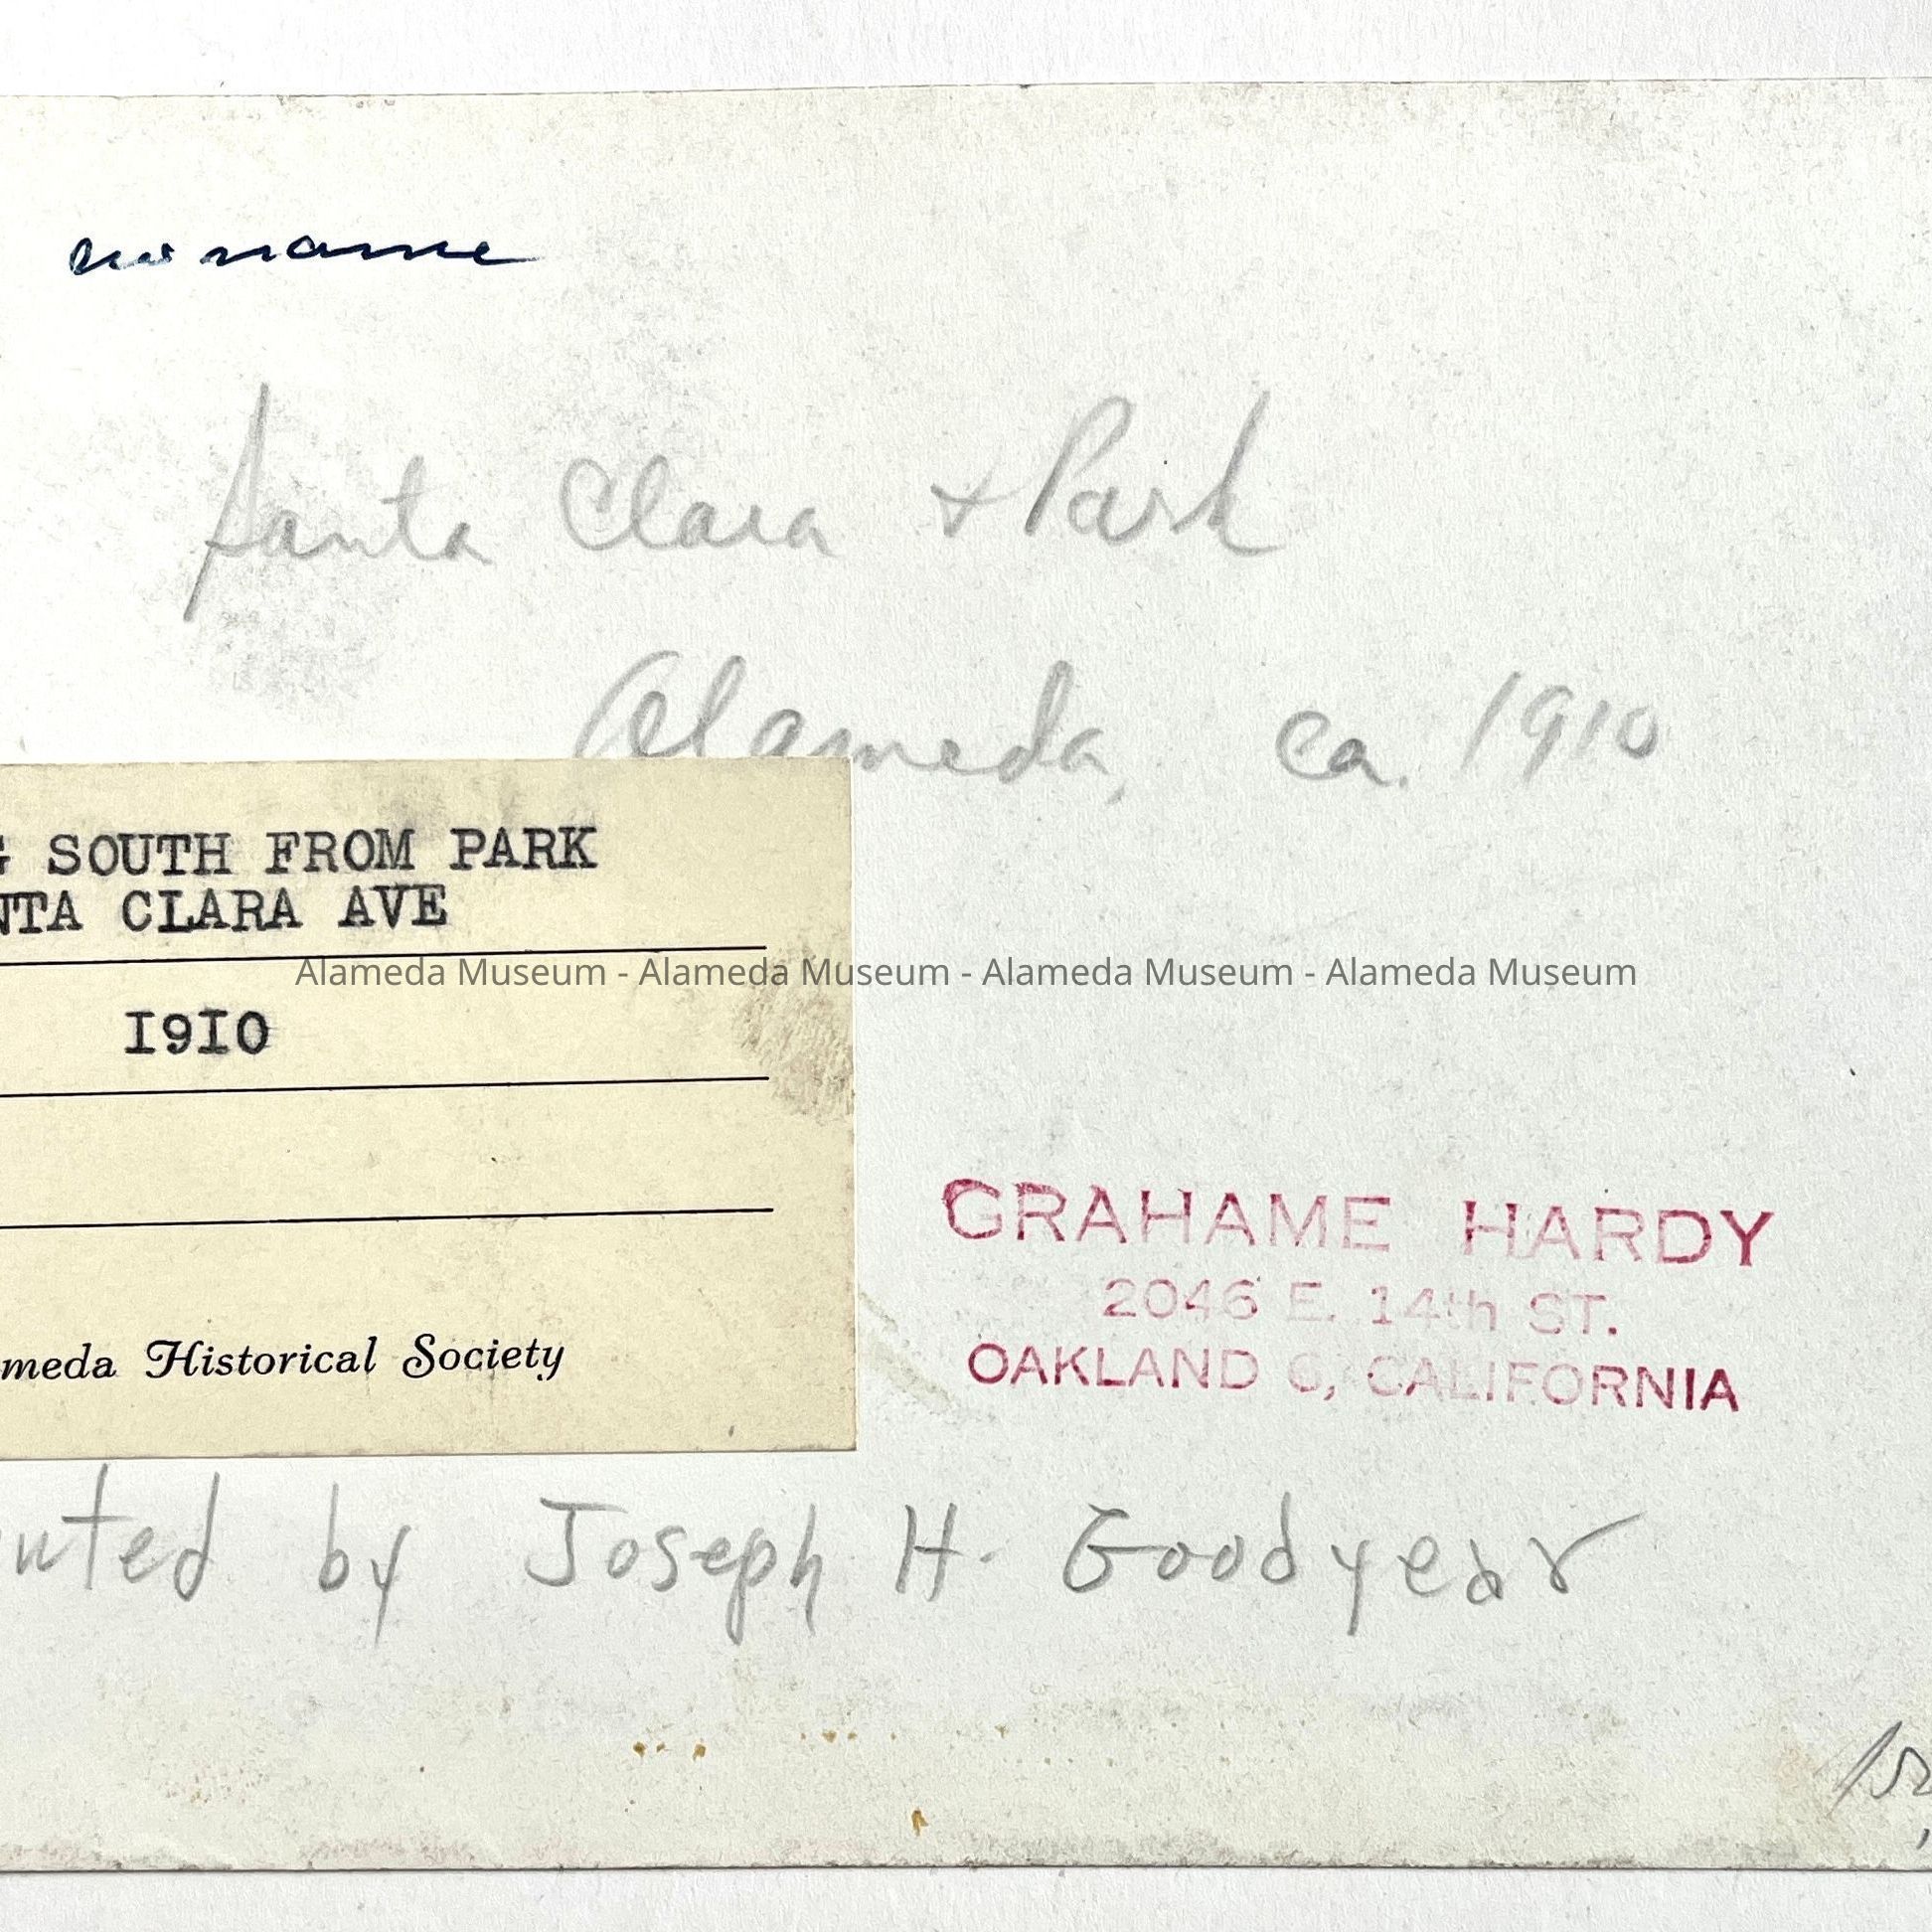 name
Santa Clara + Park
Alameda, ca. 1910
SOUTH FROM PARK
CLARA AVE
1910
Historical Society
Alameda Museum - Alameda Museum - Alameda Museum - Alameda Museum
GRAHAME HARDY
2046 E. 14th ST.
OAKLAND 6, CALIFORNIA
by Joseph H. Goodyear